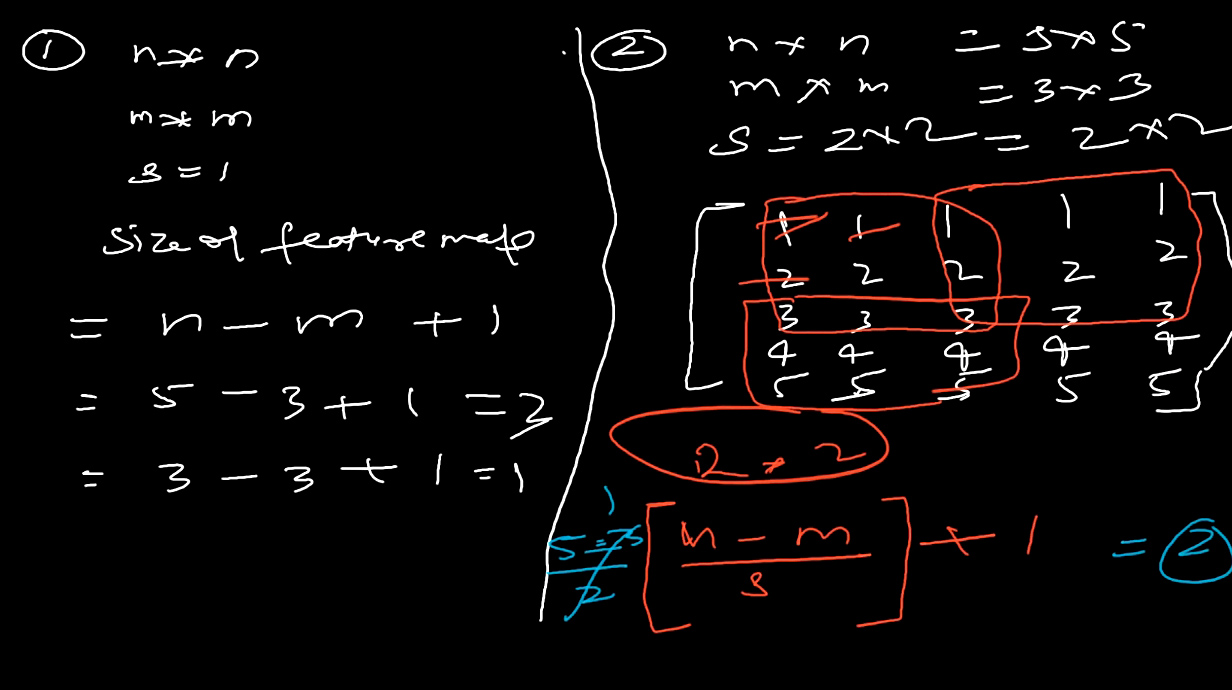 ① n * n
m * m
s = 1
Size of feature map
= n - m + 1
= 5 - 3 + 1 = 3
= 3 - 3 + 1 = 1
② n * n = 5 * 5
m * m = 3 * 3
S = 2 * 2 = 2 * 2
1 1 1 1 1
2 2 2 2 2
3 3 3 3 3
4 4 4 4 4
5 5 5 5 5
2 * 2
1
5 - 3 / 2 [ n - m / s ] + 1 = ②